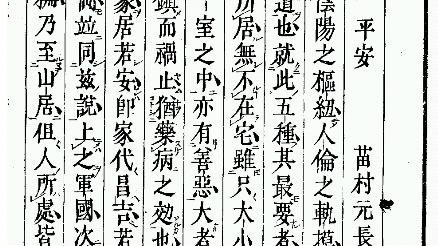 平安 苗村元長
陰陽之樞紐人倫之軌模
道也就此五種其最要者
所居無不在宅雖只大小
一室之中亦有善惡大者
鎮而禍止猶藥病之効也
家居若安卽家代昌吉若
竝同茲說上之軍國次
乃至山居但人所處皆